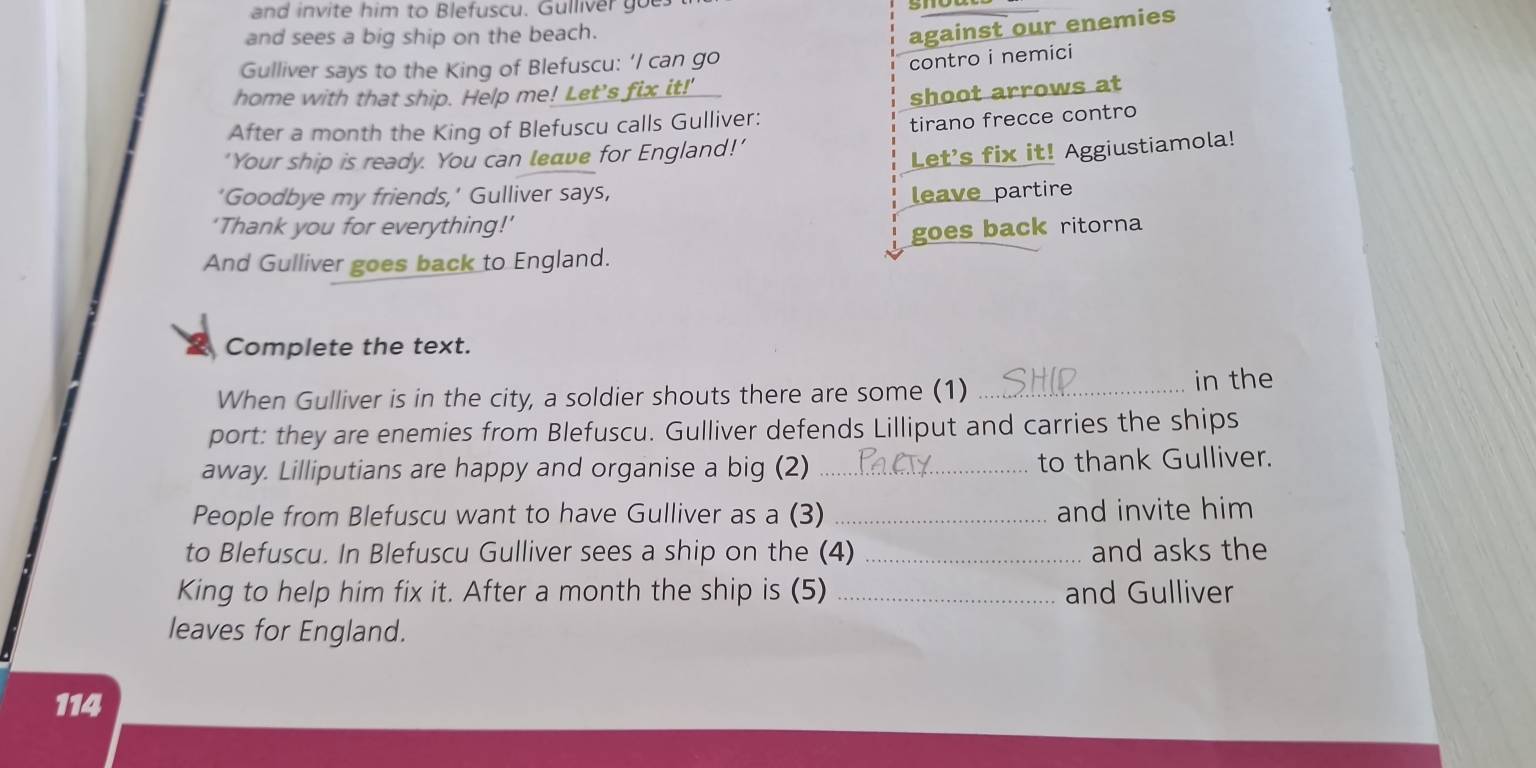 and invite him to Blefuscu. Gulliver goes
and sees a big ship on the beach.
Gulliver says to the King of Blefuscu: 'I can go
home with that ship. Help me! Let's fix it!'
After a month the King of Blefuscu calls Gulliver:
'Your ship is ready. You can leave for England!'
'Goodbye my friends,' Gulliver says,
'Thank you for everything!'
And Gulliver goes back to England.
against our enemies
contro i nemici
shoot arrows at
tirano frecce contro
Let's fix it! Aggiustiamola!
leave partire
goes back ritorna
2 Complete the text.
When Gulliver is in the city, a soldier shouts there are some (1) SHIP in the
port: they are enemies from Blefuscu. Gulliver defends Lilliput and carries the ships
away. Lilliputians are happy and organise a big (2) PARTY to thank Gulliver.
People from Blefuscu want to have Gulliver as a (3) and invite him
to Blefuscu. In Blefuscu Gulliver sees a ship on the (4) and asks the
King to help him fix it. After a month the ship is (5) and Gulliver
leaves for England.
114